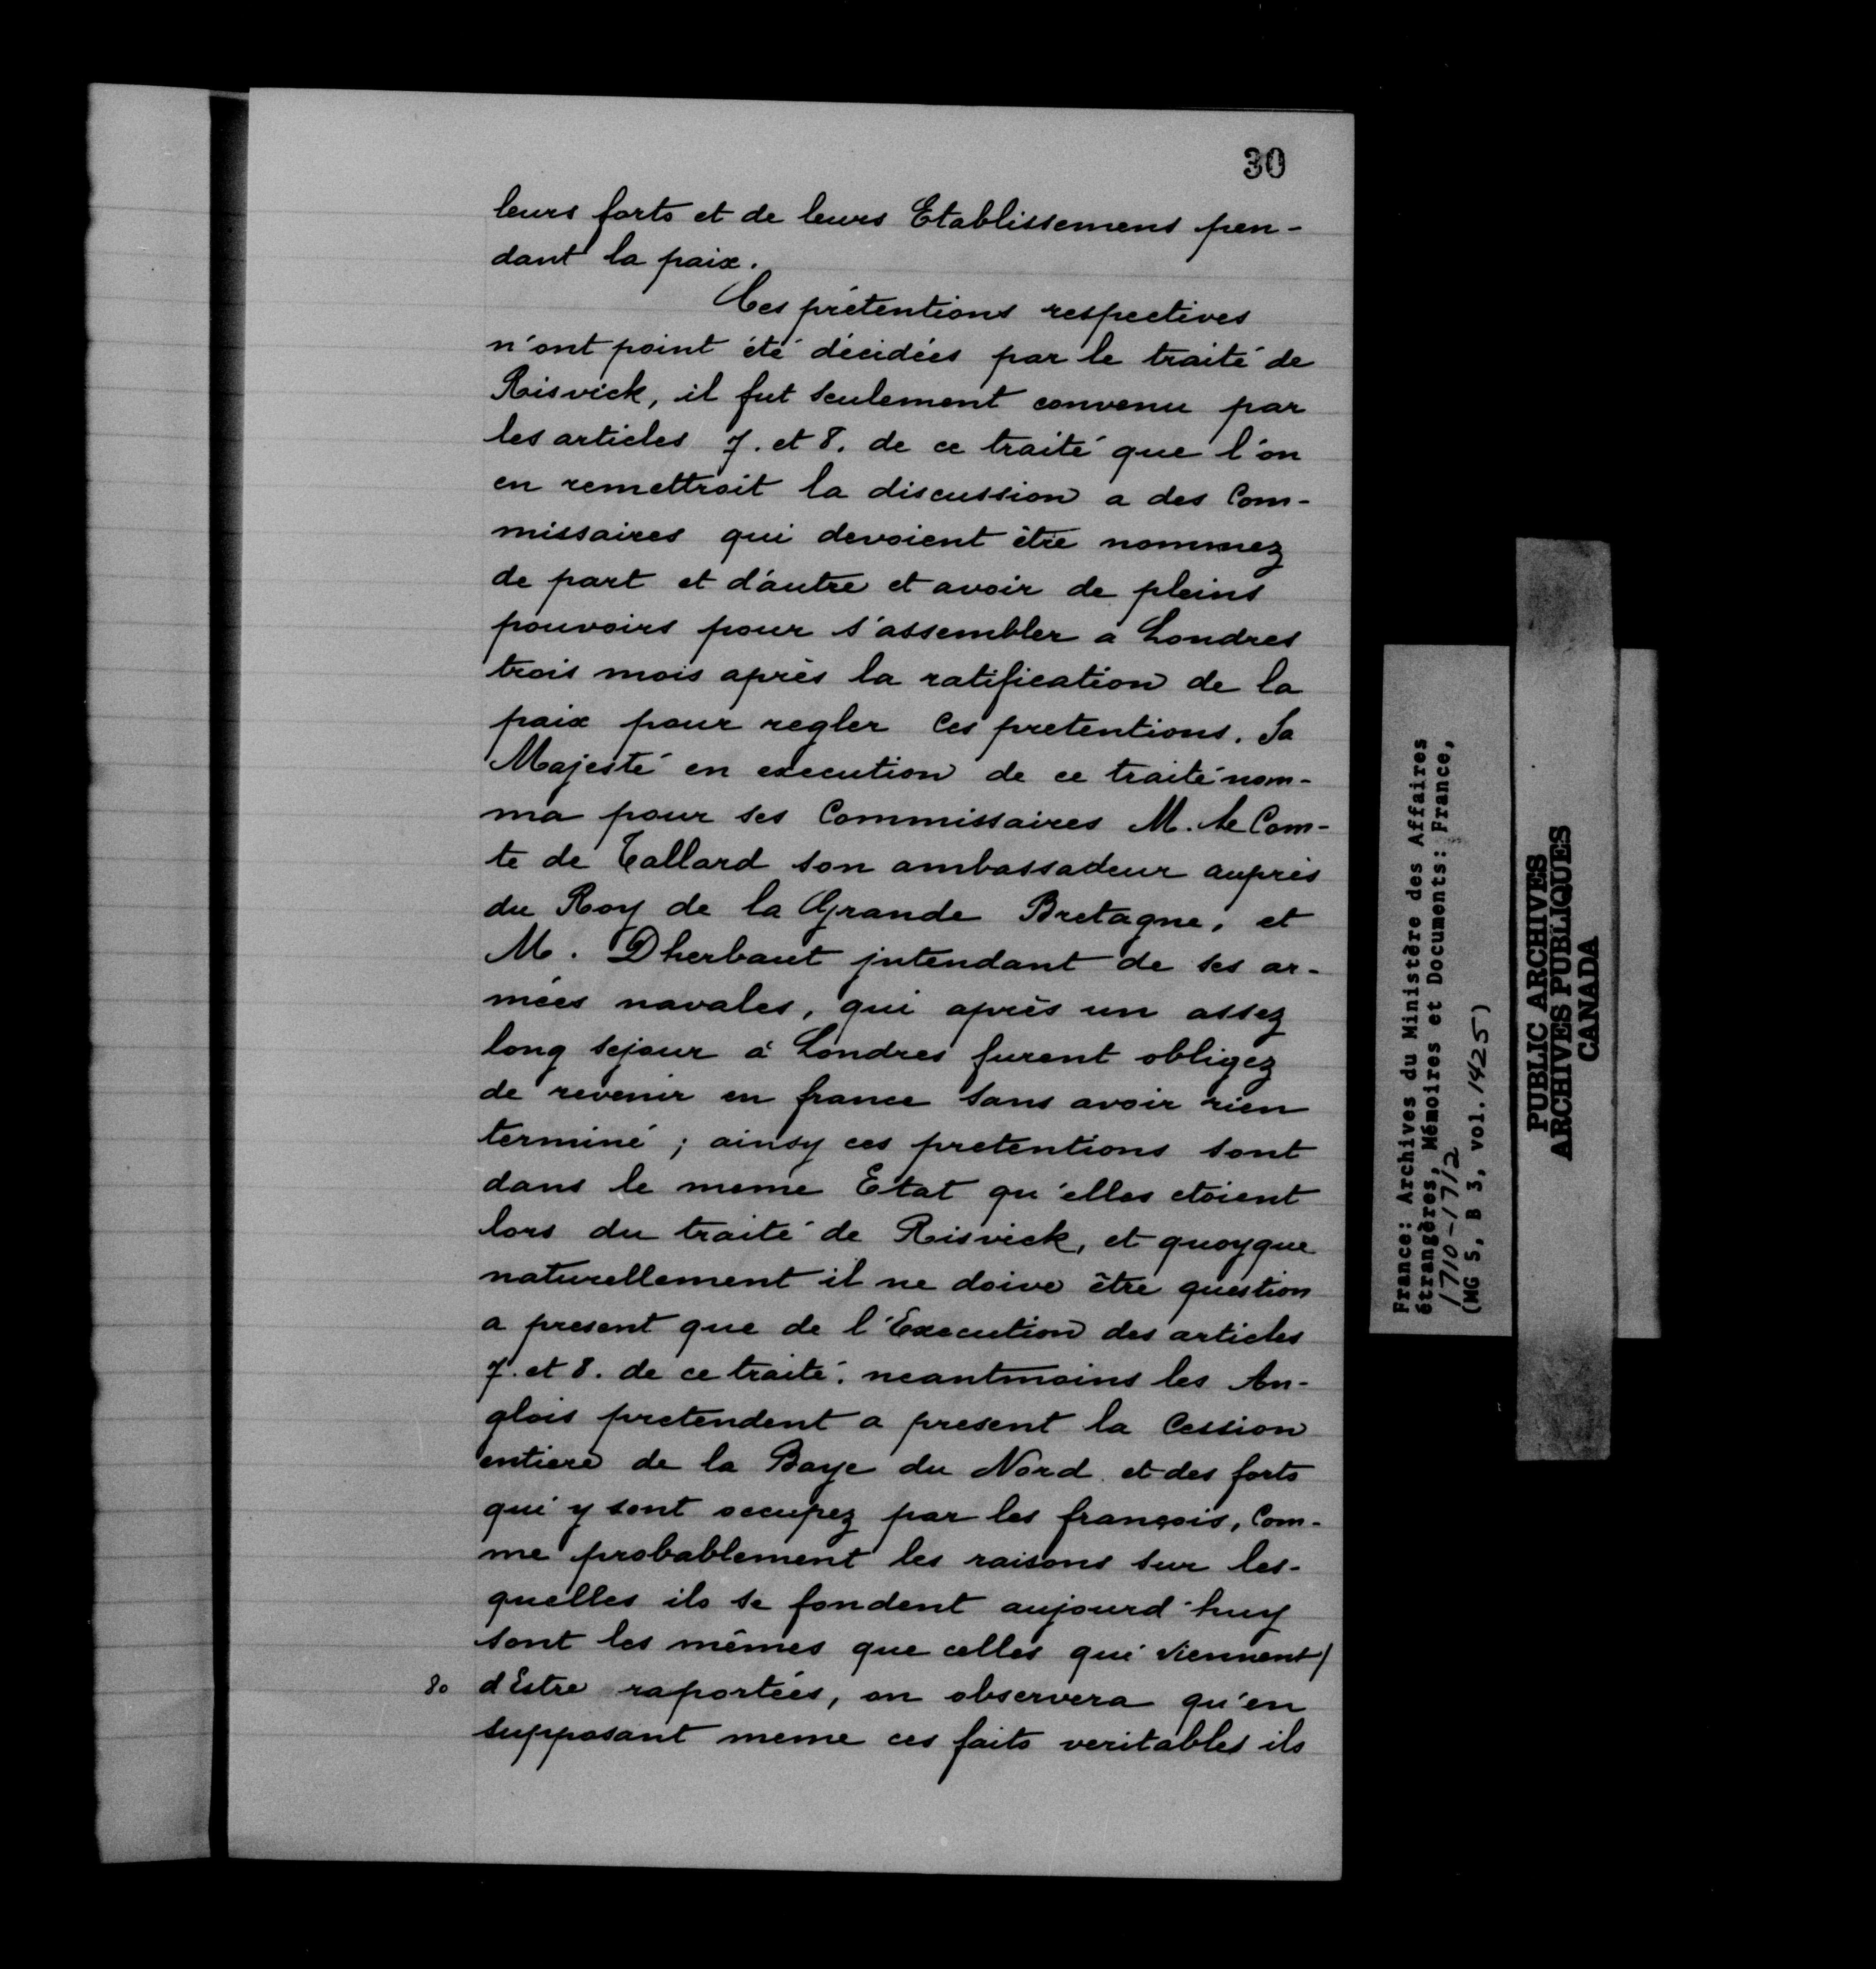 30
leurs forts et de leurs Etablissemens pen-
dant la paix.
Ces prétentions respectives
n'ont point été décidées par le traité de
Risvick, il fut seulement convenu par
les articles 7. et 8. de ce traité que l'on
en remettroit la discussion a des Com-
missaires qui devoient être nommez
de part et d'autre et avoir de pleins
pouvoirs pour s'assembler à Londres
trois mois après la ratification de la
paix pour regler ces pretentions. Sa
Majesté en execution de ce traité nom-
ma pour ses Commissaires M. le Com-
te de Tallard son ambassadeur auprès
du Roy de la Grande Bretagne, et
M. Dherbaut jntendant de ses ar-
mées navales, qui après un assez
long sejour à Londres furent obligez
de revenir en france sans avoir rien
terminé; ainsy ces pretentions sont
dans le meme Etat qu'elles etoient
lors du traité de Risvick, et quoyque
naturellement il ne doive être question
a present que de l'Execution des articles
7. et 8. de ce traité. neantmoins les An-
glois pretendent a present la Cession
entiere de la Baye du Nord et des forts
qui y sont occupez par les françois, Com-
me probablement les raisons sur les-
quelles ils se fondent aujourd'huy
sont les mêmes que celles qui viennent/
80 d'Estre raportées, on observera qu'en
supposant meme ces faits veritables ils
France: Archives du Ministère des Affaires
étrangères, Mémoires et Documents: France,
1710-1712
(MG 5, B 3, vol. 1425)
PUBLIC ARCHIVES
ARCHIVES PUBLIQUES
CANADA